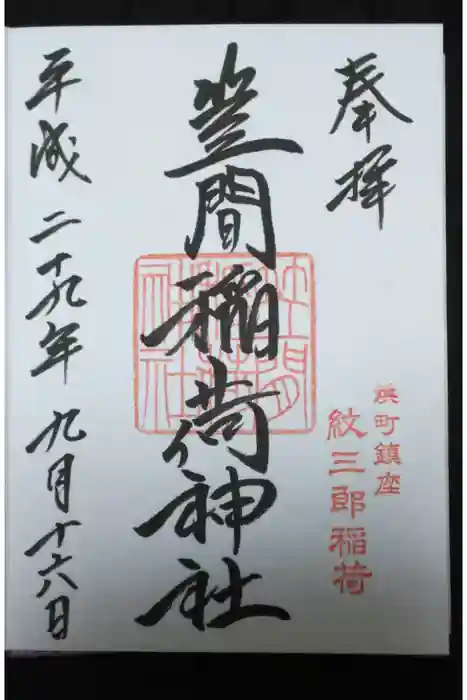 奉拝
浜町鎮座
紋三郎稲荷
笠間稲荷神社
平成二十九年九月十六日